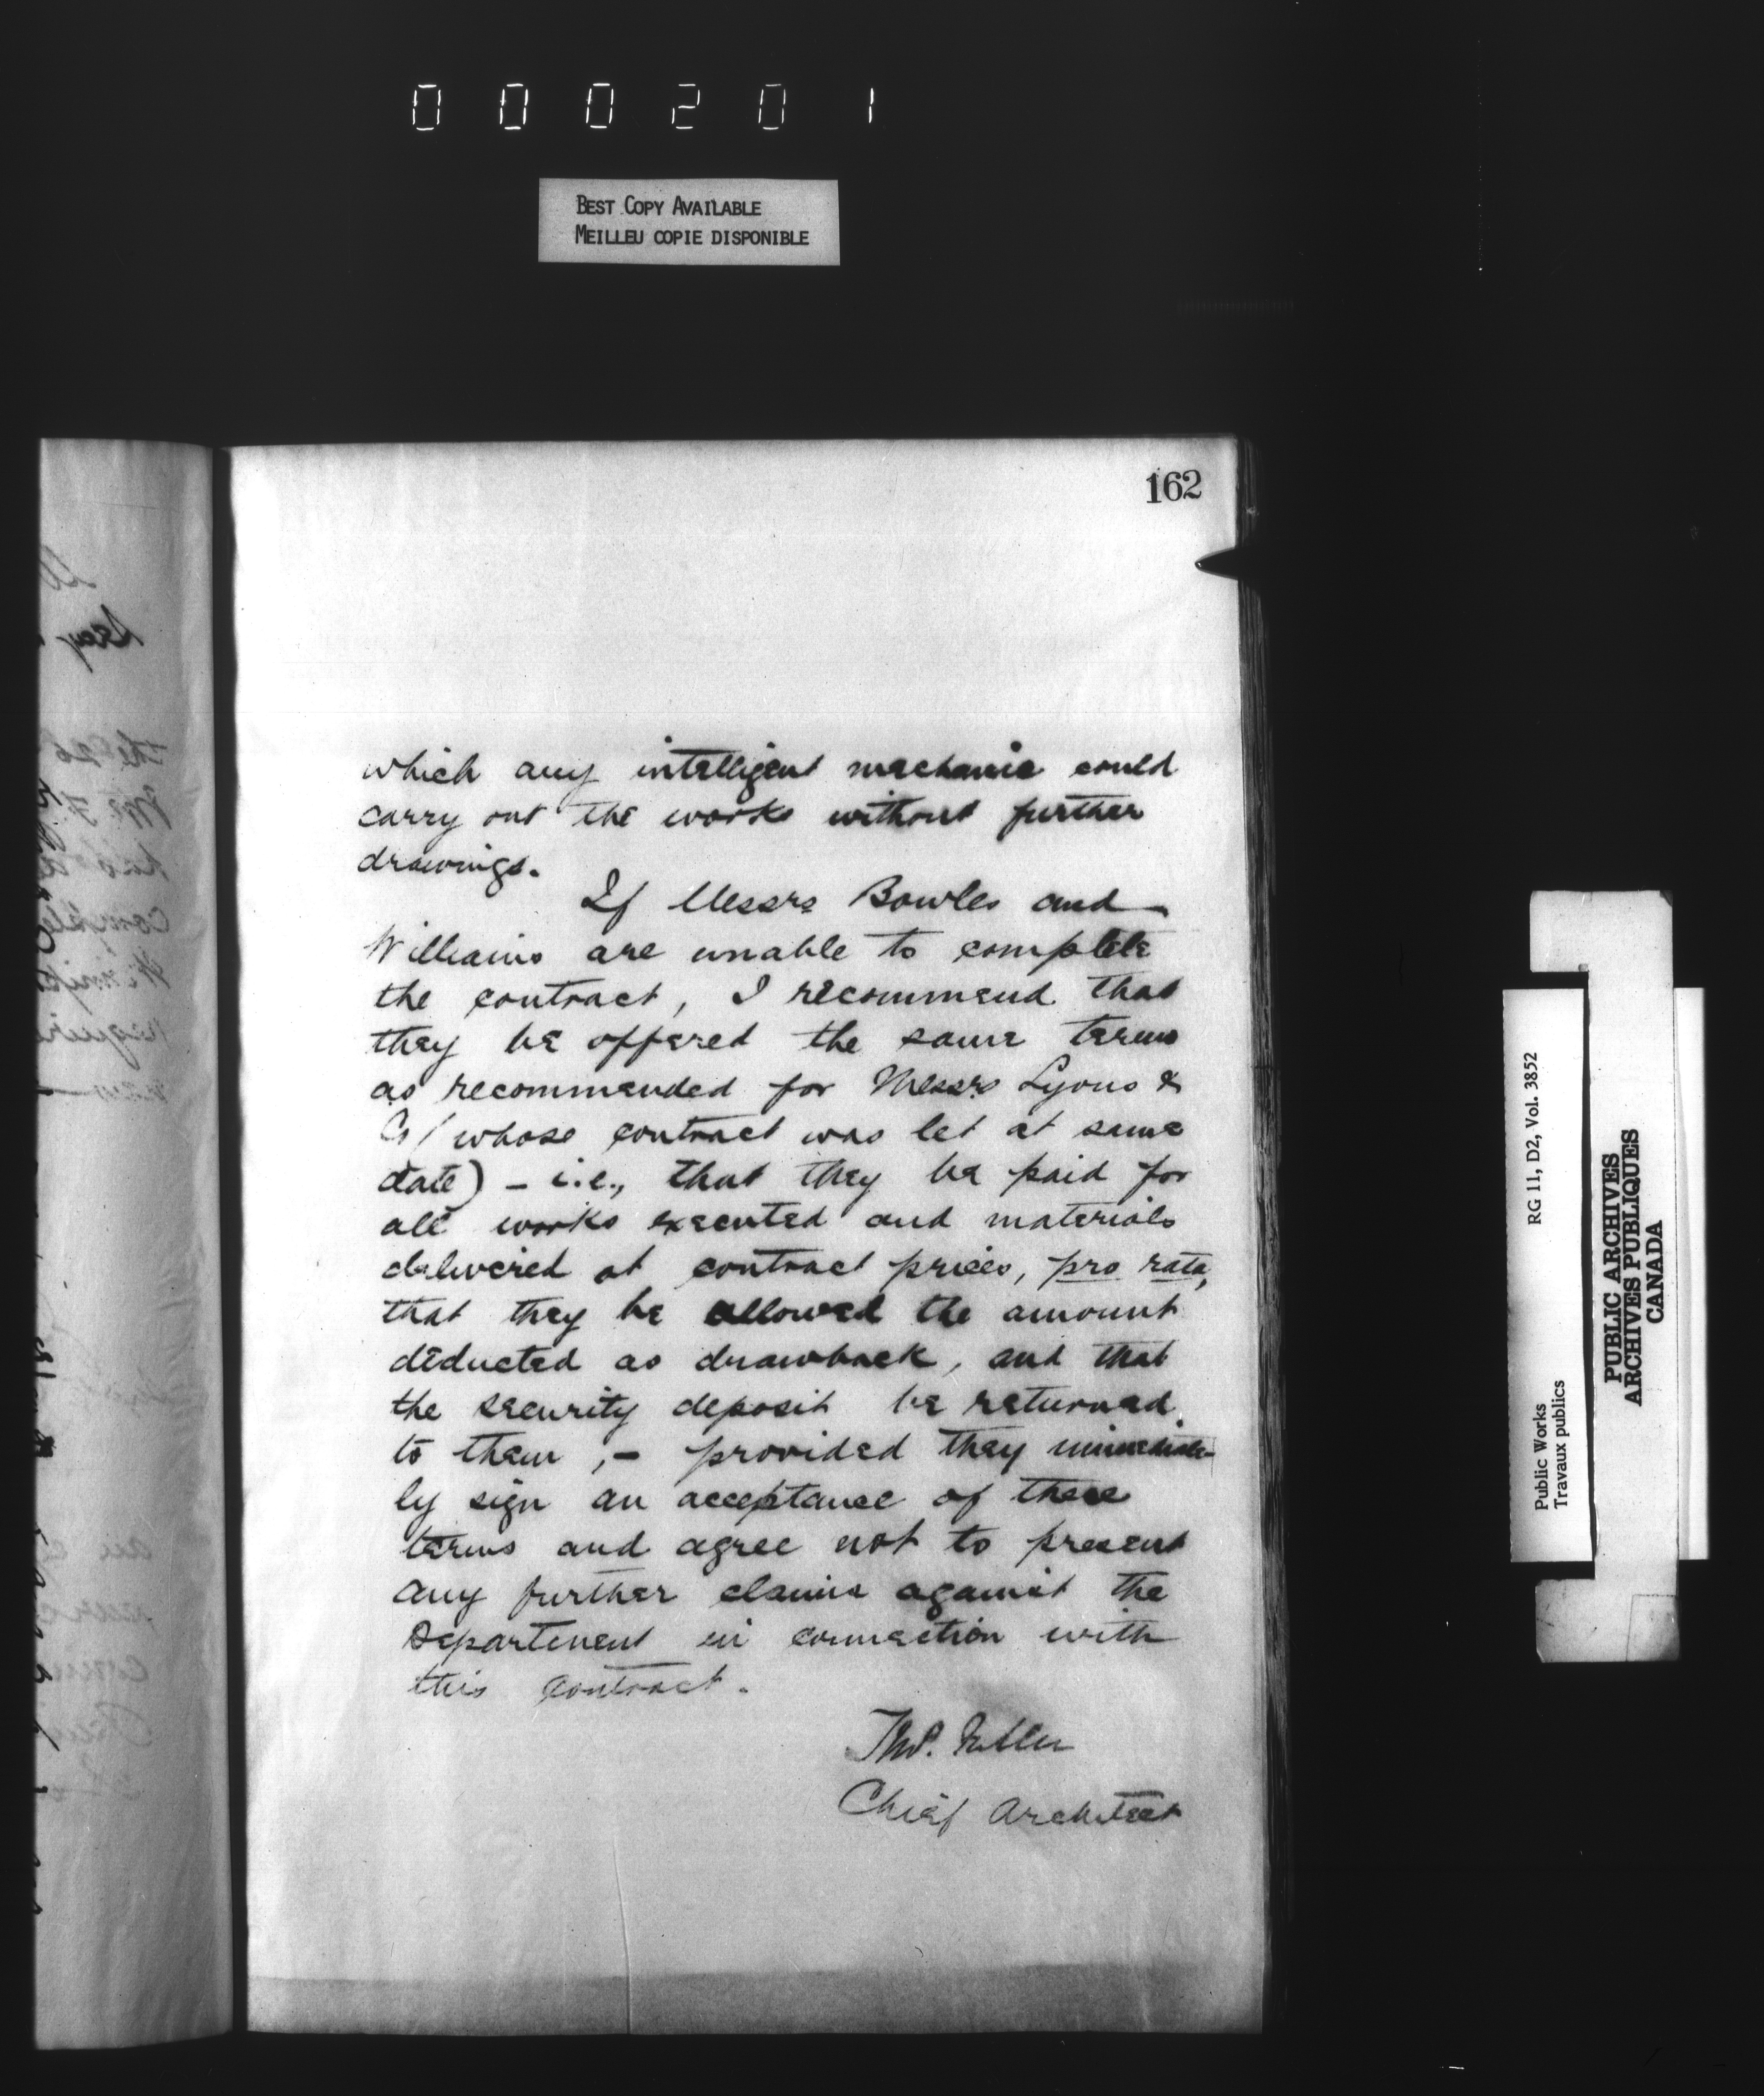 000201
BEST COPY AVAILABLE
MEILLEU COPIE DISPONIBLE
162
which any intelligent mechanic could
carry out the works without further
drawings.
If Messrs Bowles and
Williams are unable to complete
the contract, I recommend that
they be offered the same terms
as recommended for Messrs Lyons &
Co (whose contract was let at same
date) - i.e., that they be paid for
all works executed and materials
delivered at contract prices, pro rata,
that they be allowed the amount
deducted as drawback, and that
the security deposit be returned
to them, - provided they immediate-
ly sign an acceptance of these
terms and agree not to present
any further claims against the
Department in connection with
this contract.
Thos. Fuller
Chief Architect
Public Works
Travaux publics
RG 11, D2, Vol. 3852
PUBLIC ARCHIVES
ARCHIVES PUBLIQUES
CANADA